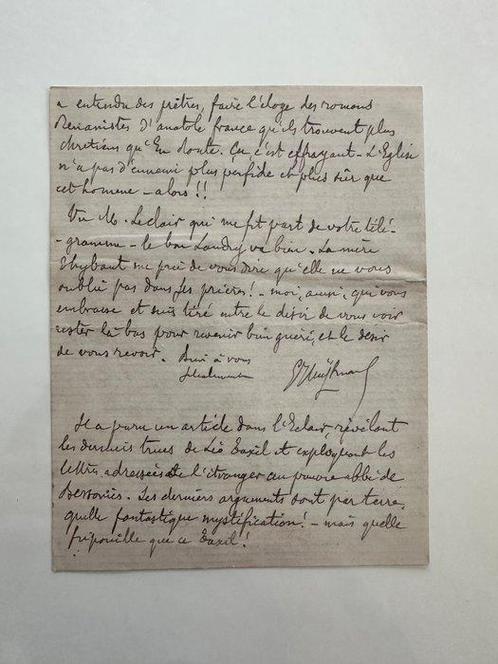 a entendu des prêtres, faire l'éloge des romans
Renanistes d'Anatole france qu'ils trouvent plus
chrétiens qu'En Route. Ça, c'est effrayant – L'Eglise
n'a pas d'ennemi plus perfide et plus sûr que
cet homme – alors !!
Vu M. Leclair qui me fit part de votre télé-
-gramme – le bon Landry va bien. La mère
Thybaut me prie de vous dire qu'elle ne vous
oublie pas dans ses prières ! – moi, aussi, qui vous
embrasse et suis tiré entre le désir de vous voir
rester là-bas pour revenir bien guéri, et le désir
de vous revoir. Bien à vous
G Huysmans
Il a paru un article dans l'Eclair, révélant
les derniers trucs de Léo Taxil et expliquant les
lettres adressées de l'étranger au pauvre abbé de
Bessonies. Les derniers arguments sont par terre,
quelle fantastique mystification ! – mais quelle
fripouille que ce Taxil !